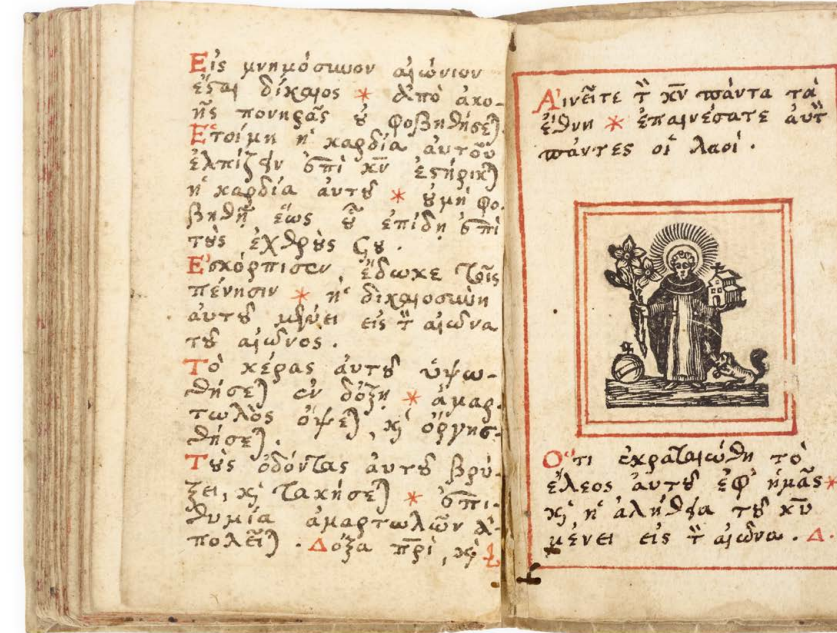 Εἰς μνημόσυνον αἰώνιον
ἔσται δίκαιος * ἀπὸ ἀκο-
ῆς πονηρᾶς ȣ φοβηθήσε)
Ἑτοίμη ἡ καρδία αὐτοῦ
ἐλπίζειν ἐπὶ κν̅ ἐστήρικ)
ἡ καρδία αὐτȣ * ȣ μὴ φο-
βηθῇ ἕως ȣ͂ ἐπίδῃ ἐπὶ
τȣ̀ς ἐχθρȣ̀ς ϛȣ.
Ἐσκόρπισεν ἔδωκε τοῖς
πένησιν * ἡ δικαιοσύνη
αὐτȣ μένει εἰς τ̅ αἰῶνα
τȣ͂ αἰῶνος.
Τὸ κέρας αὐτȣ ὑψω-
θήσε) ἐν δόξῃ * ἁμαρ-
τωλὸς ὄψε), κ̀ ὀργισ-
θήσε).
Τȣ̀ς ὀδόντας αὐτȣ βρύ-
ξει, κ̀ τακήσε) * ἐπι-
θυμία ἁμαρτωλῶν ἀ-
πολεῖ). Δόξα πρ̅ὶ, κ̀
Αἰνεῖτε τ̅ κν̅ πάντα τὰ
ἔθνη * ἐπαινέσατε αὐτ̅
πάντες οἱ λαοί.
Ὅτι ἐκραταιώθη τὸ
ἔλεος αὐτȣ ἐφ' ἡμᾶς *
κ̀ ἡ ἀλήθεια τȣ͂ κυ̅
μένει εἰς τ̅ αἰῶνα. Δ.